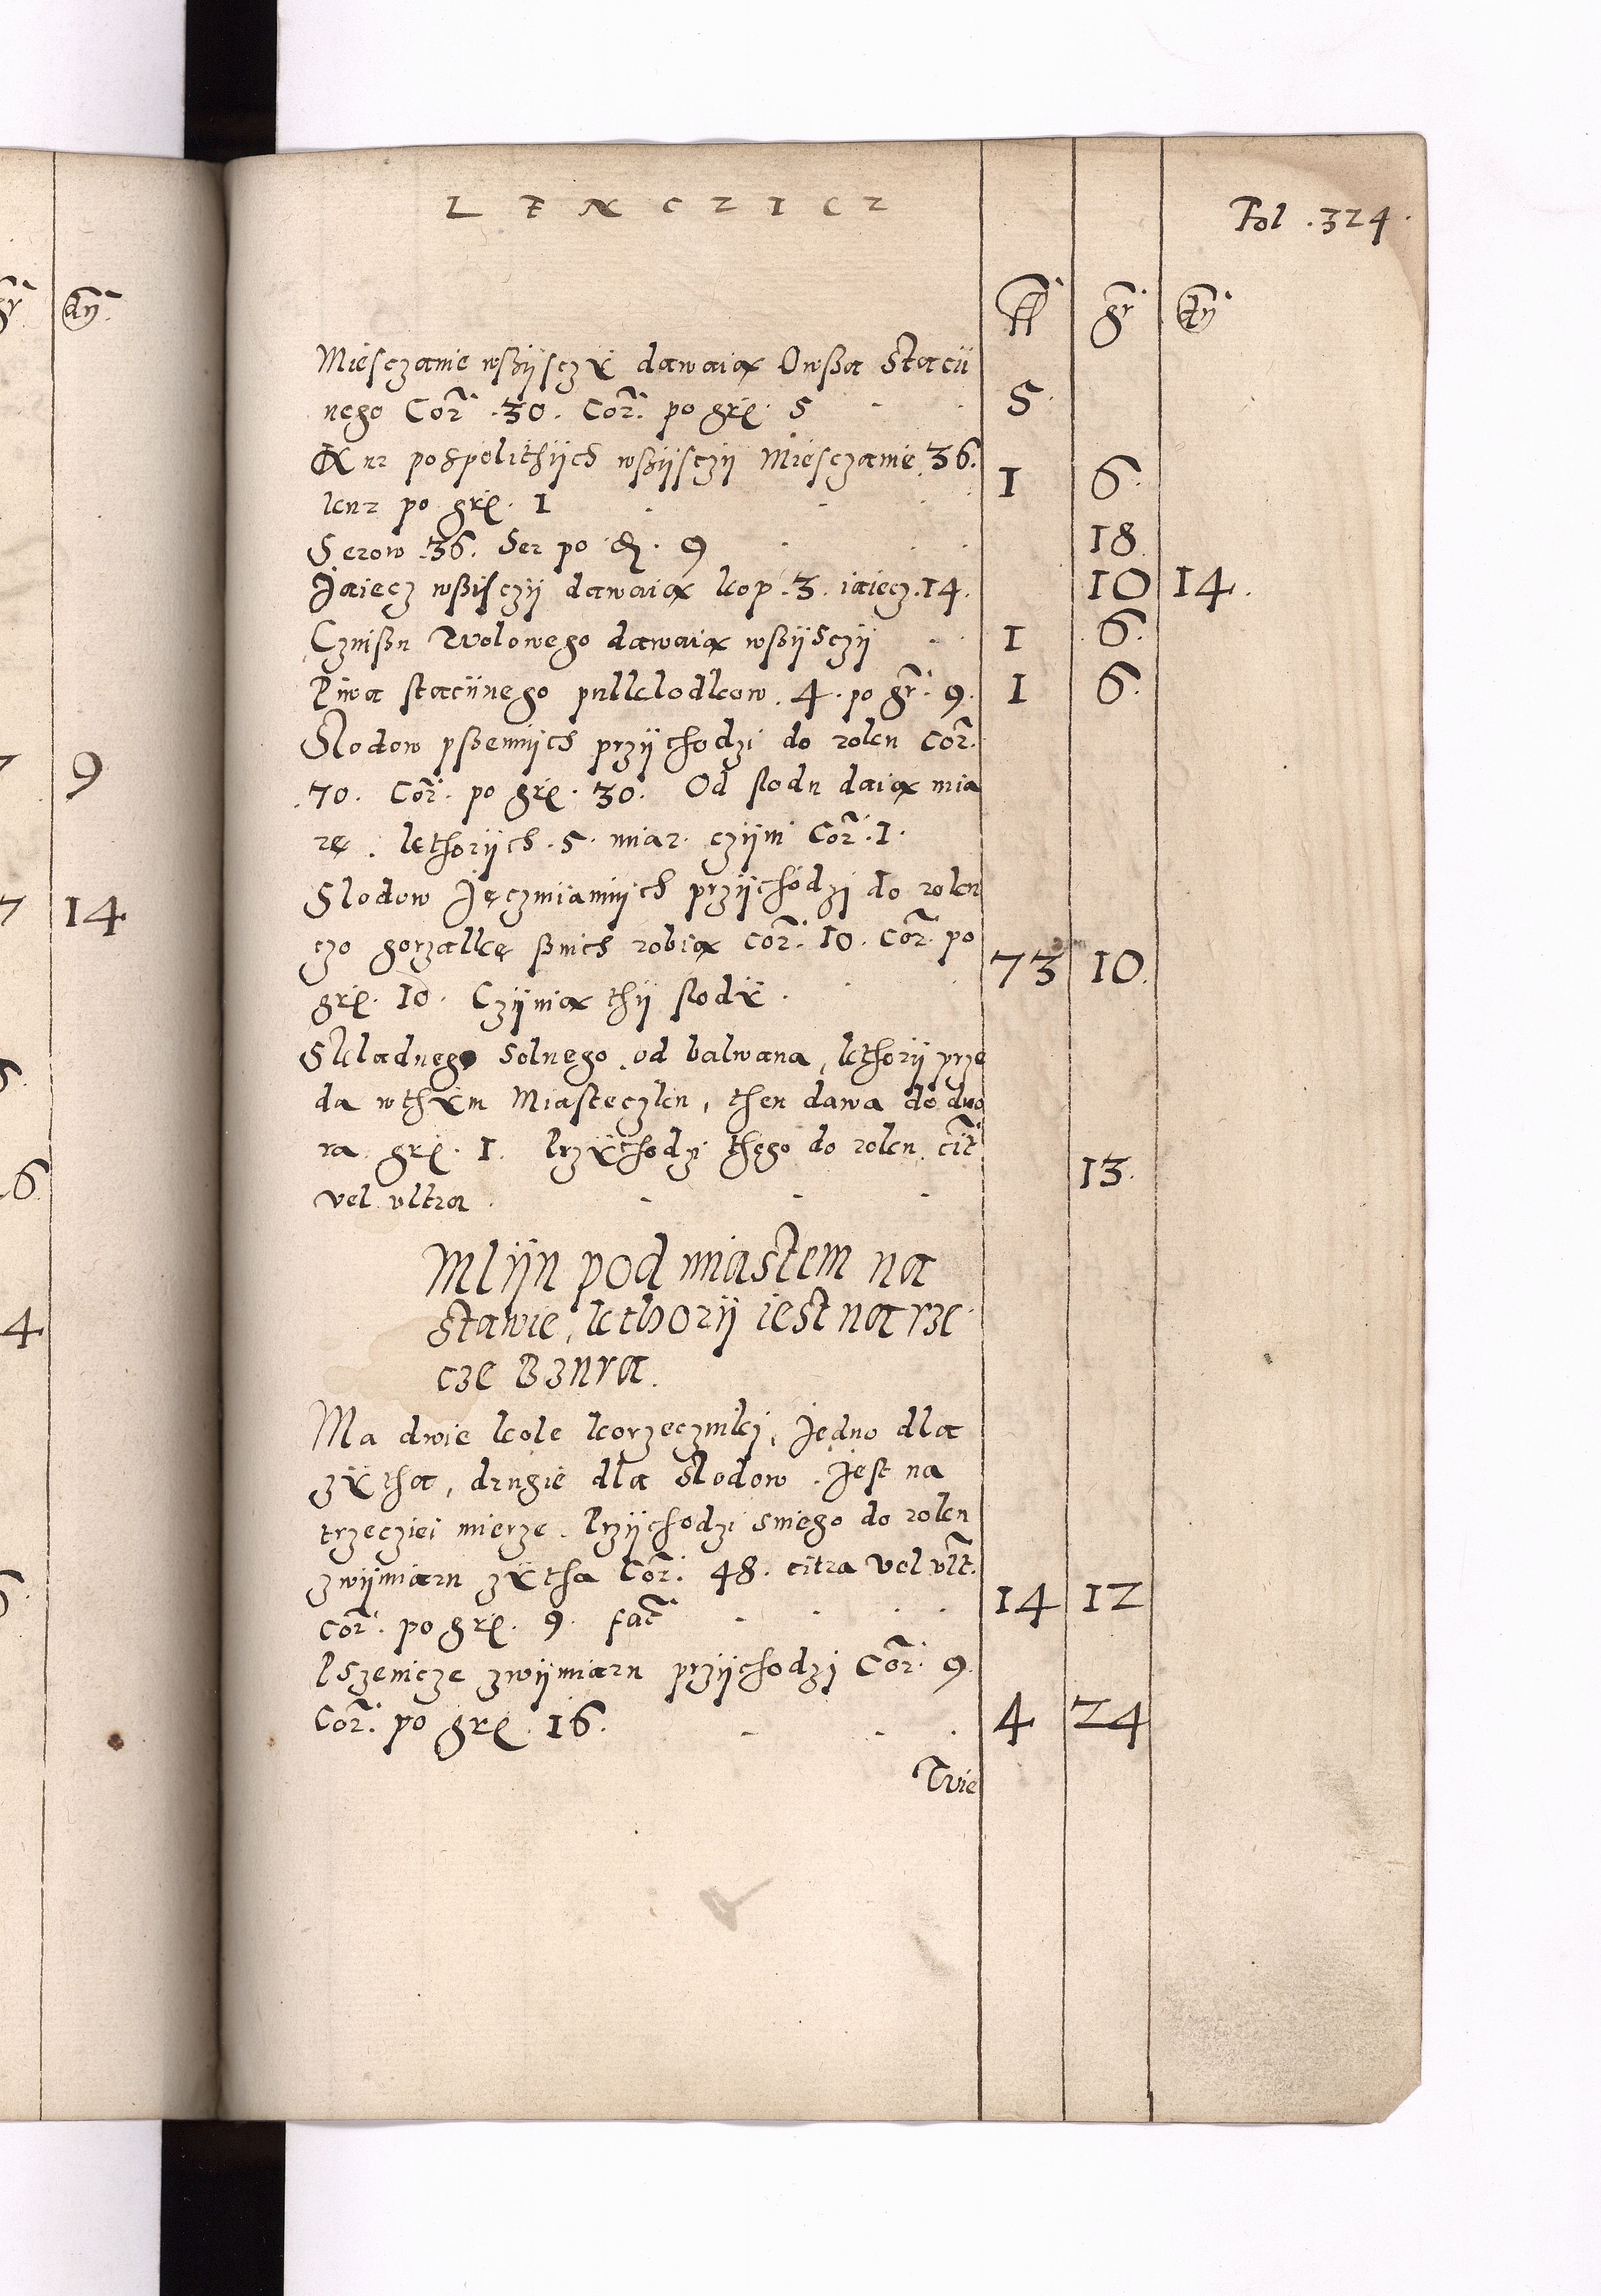 LENCZICZ
Fol .324.
fl gr dn
Miesczanie wßijsczÿ dawaią Owßa Stacii
nego Cor. .30. Cor. po grę. 5 5
Kur pospolithÿch wßÿsczÿ Miesczanie .36.
kur po grę. 1 1 6.
Serow .36. Ser po d. 9 18
Jaiecz wßisczÿ dawaią kop .3. iaiecz .14. 10 14.
Czinßu Wolowego dawaią wßÿsczÿ 1 6.
Piwa staciinego pulklodkow .4. po gr. 9. 1 6.
Slodow pßennÿch przÿchodzi do roku Cor.
.70. Cor. po grę. 30. Od slodu daią mia
rę. kthorÿch .5. miar. czÿni Cor. .1.
Slodow Jęczmiannÿch przÿchodzi do roku
czo gorzałkę ßnich robią Cor. 10. Cor. po
grę. 10. Czÿnią thÿ slodÿ. 73 10.
Skladnego Solnego od balwana, kthorÿ prze
da wthÿm Miasteczku, then dawa do dwo
ra grę. 1. Przÿchodzi thego do roku cit.
vel vltra. 13.
Mlÿn pod miastem na
stawie, kthorÿ iest na rze
cze Bzura.
Ma dwie kole korzecznikj, Jedno dla
zÿtha, drugie dla Slodow. Jest na
trzecziei mierze. Przÿchodzi sniego do roku
zwÿmiaru zÿtha Cor. 48. citra vel vlt.
Cor. po grę. 9. fac. 14 12
Pszenicze zwÿmiaru przÿchodzj Cor. 9.
Cor. po grę. 16. 4 24
Tvie
gr dn
9
14
6
4